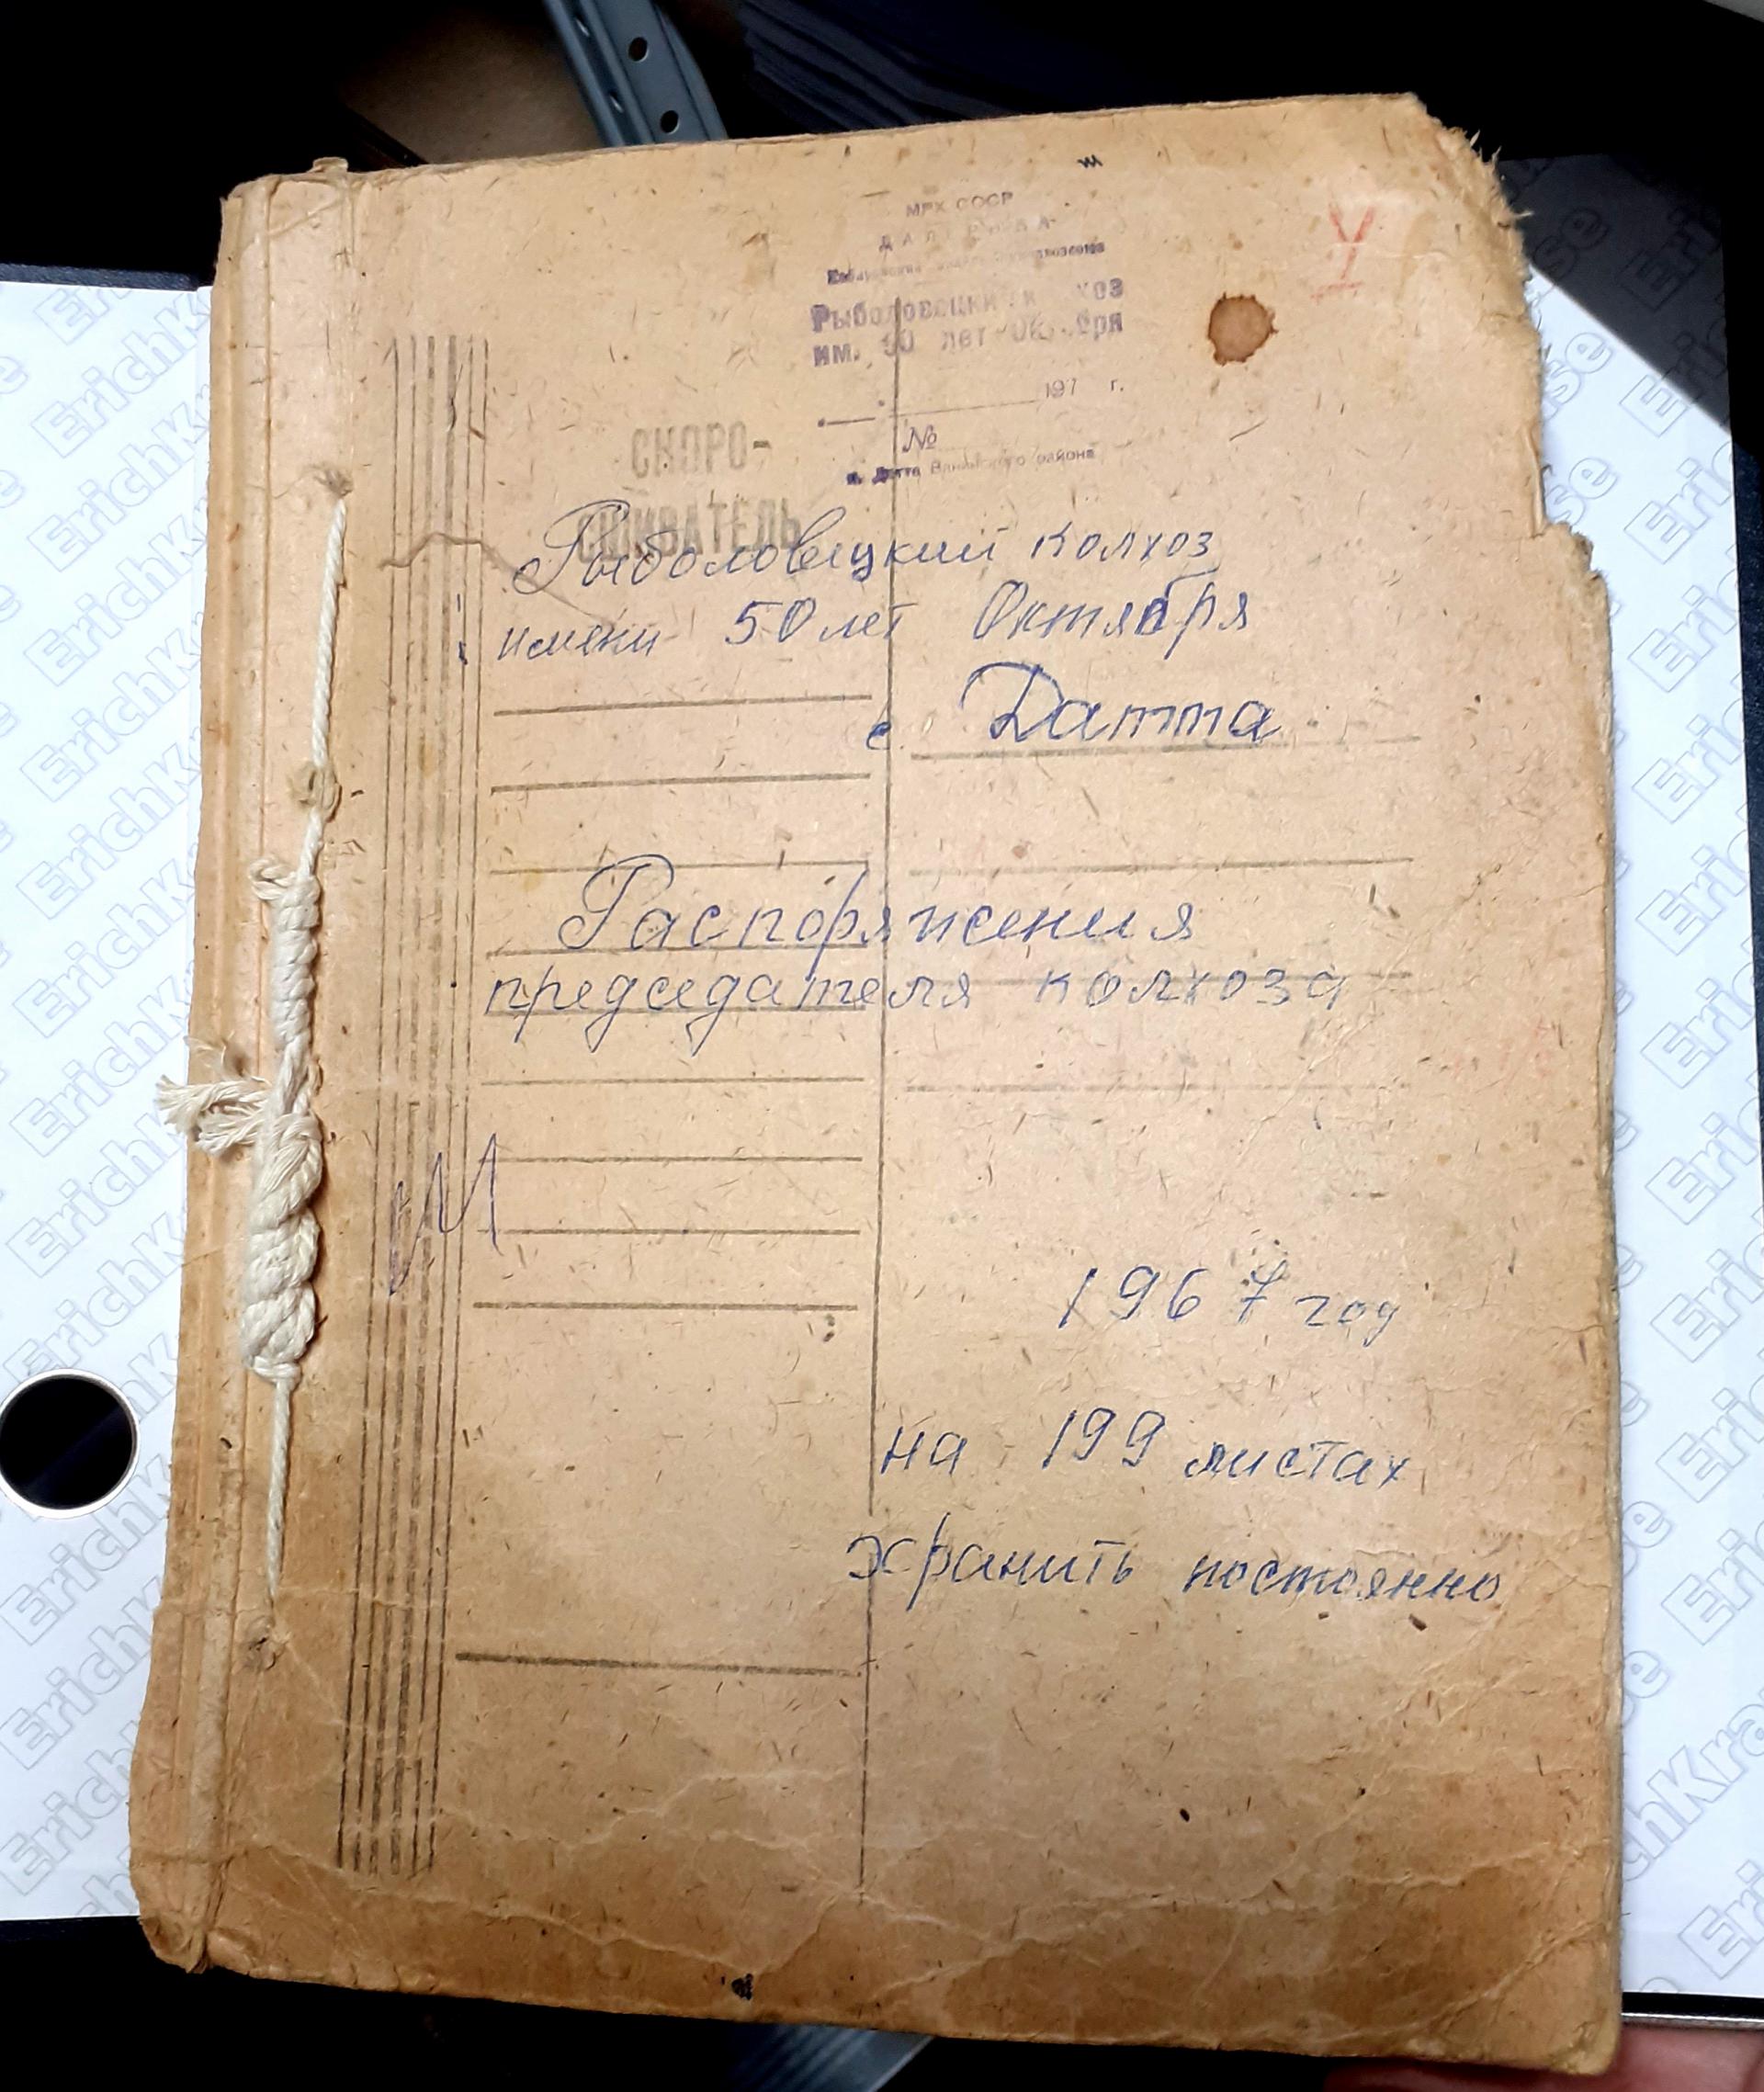 МРХ СССР
ДАЛЬРЫБА
Рыболовецкий колхоз
им. 50 лет Октября
197 г.
№
п. Датта Ванинского района
СКОРО-
СШИВАТЕЛЬ
Рыболовецкий колхоз
имени 50 лет Октября
с. Датта
Распоряжения
председателя колхоза
1967 год
на 199 листах
хранить постоянно
ErichKrause